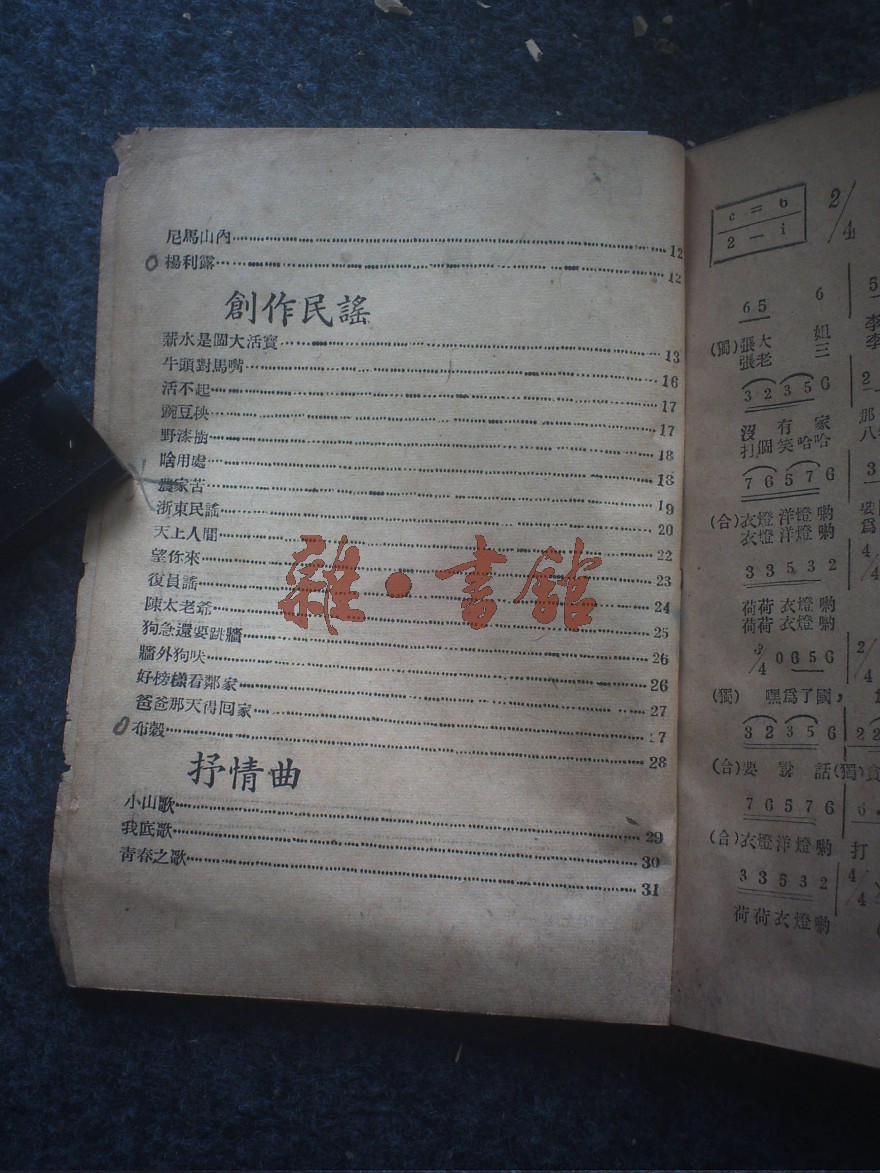 尼馬山內 12
楊利露 12
創作民謠
薪水是個大活寶 13
牛頭對馬嘴 16
活不起 17
豌豆秧 17
野漆樹 18
啥用處 18
農家苦 19
浙東民謠 20
天上人間 22
望你來 23
復員謠 24
陳太老爺 25
狗急還要跳牆 26
牆外狗吠 26
好榜樣看鄰家 27
爸爸那天得回家 27
布穀 28
抒情曲
小山歌 29
我底歌 30
青春之歌 31
雜·書館
c = 6
2 — i
2/4
6 5 6 5
(獨)張大姐 李
張老三 李
3 2 3 5 6 2
沒有家 那
打個笑哈哈 八
7 6 5 7 6 3
(合)衣燈洋燈喲
衣燈洋燈喲 爲
3 3 5 3 2 4/4
荷荷衣燈喲
荷荷衣燈喲
3/4 0 6 5 6 2/4
(獨) 嘿爲了國，
3 2 3 5 6 2 2
(合)要說話(獨)
7 6 5 7 6 6
(合)衣燈洋燈喲 打
3 3 5 3 2 4/4
荷荷衣燈喲